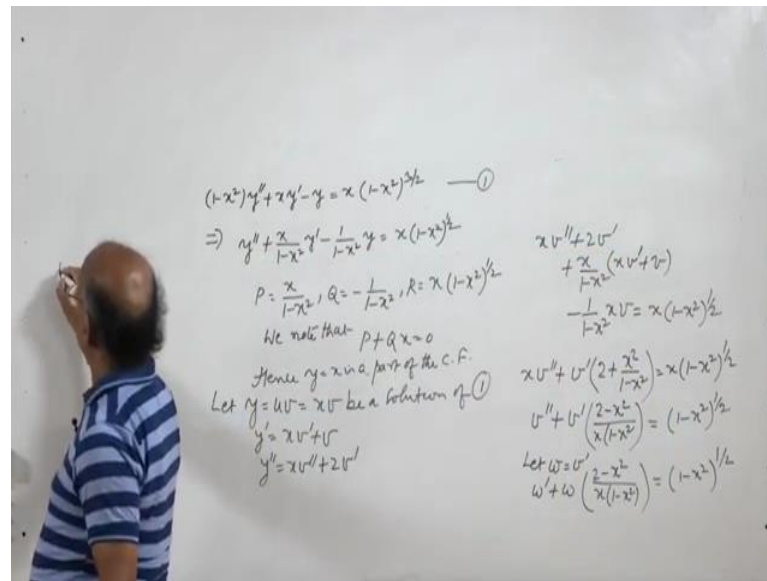 (1-x²)y''+xy'-y = x(1-x²)^3/2 —①
⇒ y''+x/(1-x²) y'-1/(1-x²) y = x(1-x²)^1/2
P = x/(1-x²), Q = -1/(1-x²), R = x(1-x²)^1/2
We note that P+Qx=0
Hence y=x is a part of the C.F.
Let y=uv=xv be a solution of ①
y'=xv'+v
y''=xv''+2v'
xv''+2v'
+x/(1-x²)(xv'+v)
-1/(1-x²) xv = x(1-x²)^1/2
xv''+v'(2+x²/(1-x²))=x(1-x²)^1/2
v''+v'((2-x²)/(x(1-x²))) = (1-x²)^1/2
Let w=v'
w'+w((2-x²)/(x(1-x²))) = (1-x²)^1/2